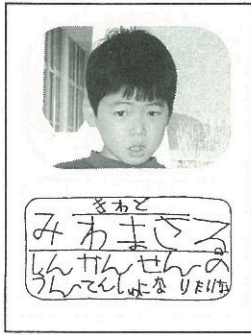 きわど
みわまさる
しんかんせんの
うんてんしゅになりたいな